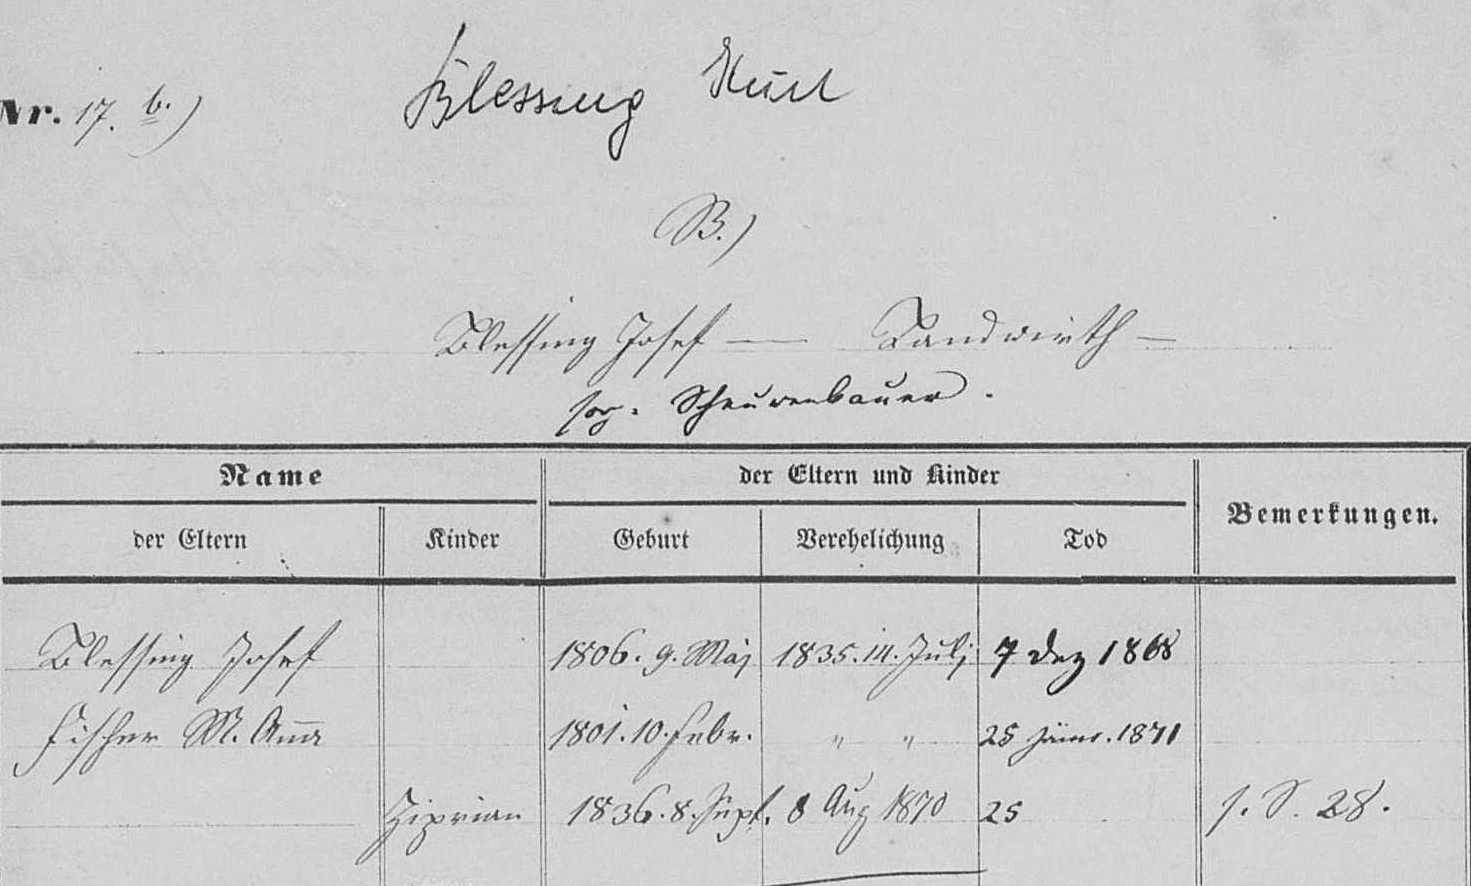 Nr. 17. b.)
Blessing Kurt
B.)
Blessing Josef — Landwirth —
sog. Scheurenbauer.
Name
der Eltern und Kinder
Bemerkungen.
der Eltern
Kinder
Geburt
Verehelichung
Tod
Blessing Josef 1806. 9. Maj 1835. 14. Julj 7 Dez 1868
Fischer M. Anna 1801. 10. Febr. " " 25 Jänner. 1871
Ziprian 1836. 8. Sept. 8 Aug 1870 25 s. S. 28.